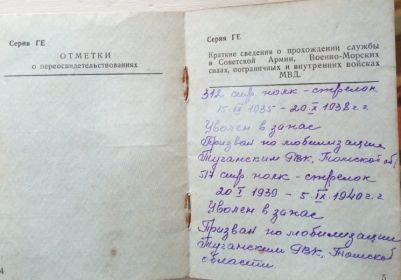 Серия ГЕ
ОТМЕТКИ
о переосвидетельствованиях
4
Серия ГЕ
Краткие сведения о прохождении службы
в Советской Армии, Военно-Морских
силах, пограничных и внутренних войсках
МВД.
312 стр. полк - стрелок
15 - 1935 - 20 X 1938 г.г
Уволен в запас
Призван по мобилизации
Туганским РВК, Томской об
517 стр. полк - стрелок
20 1939 - 5 IX 1940 г.г
Уволен в запас
Призван по мобилизации
Туганским РВК, Томской
области
5